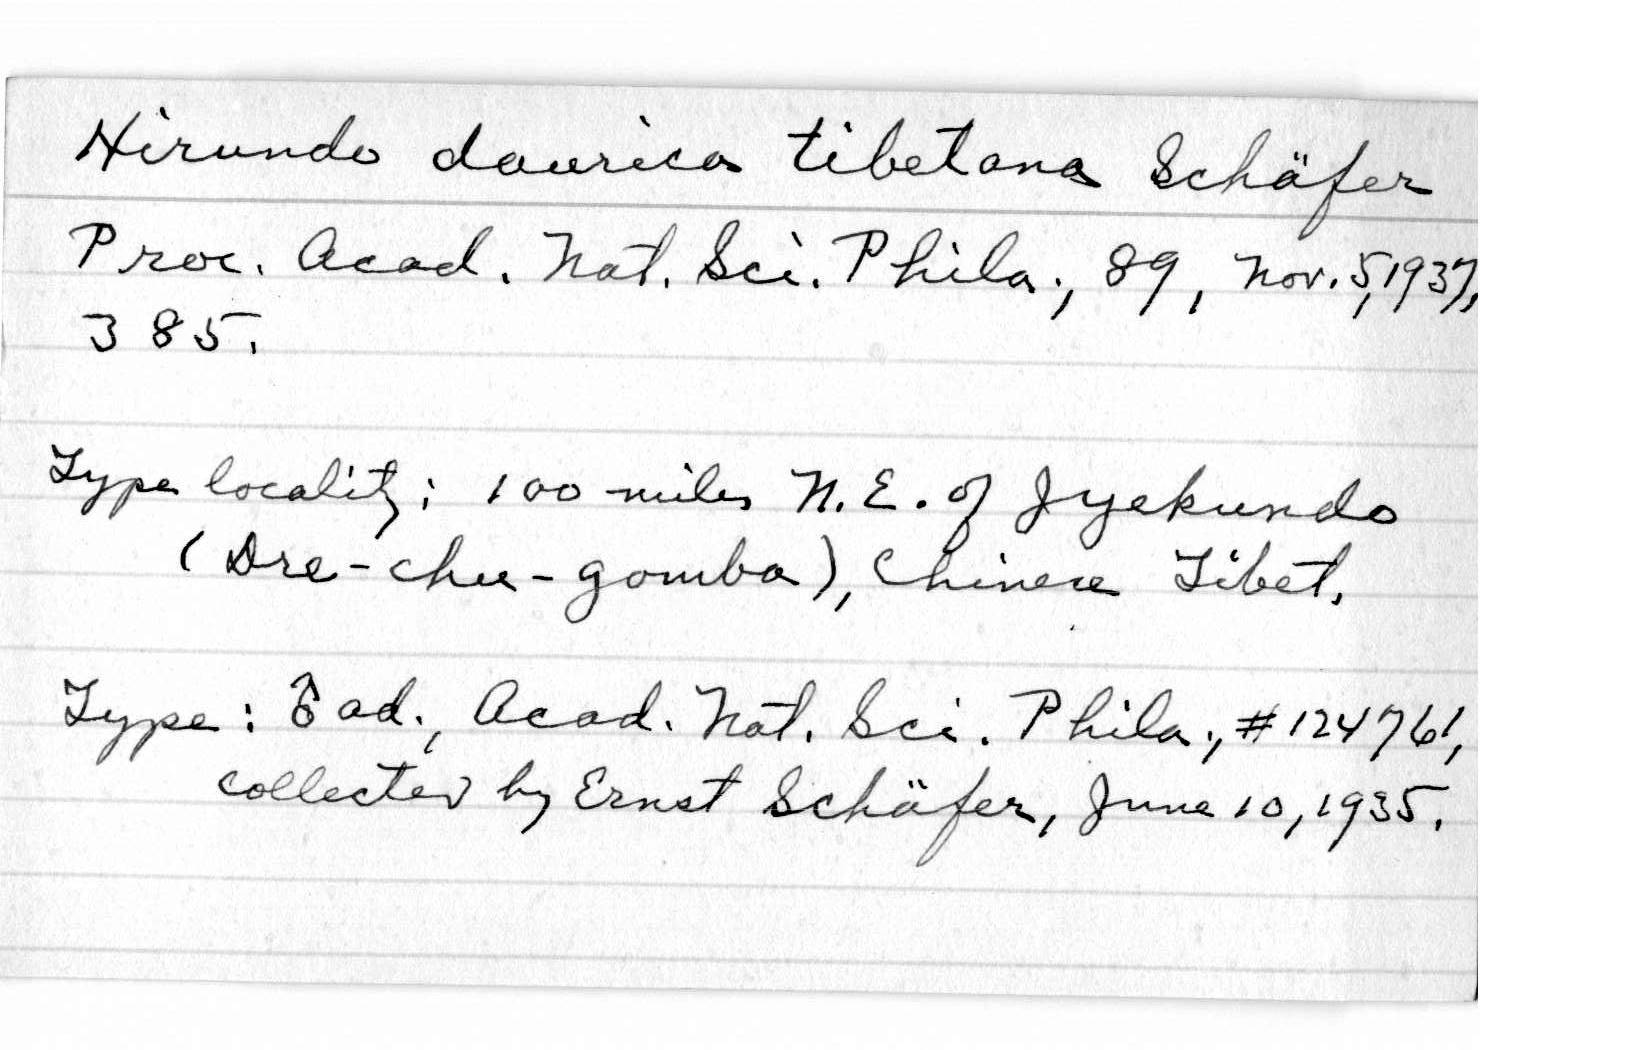 Hirundo daurica tibetana Schäfer
Proc. Acad. Nat. Sci. Phila., 89, Nov. 5, 1937,
385.
Type locality: 100 miles N.E. of Jyekundo
(Dre-chu-gomba), Chinese Tibet.
Type: ♂ ad., Acad. Nat. Sci. Phila., #124761,
collected by Ernst Schäfer, June 10, 1935.